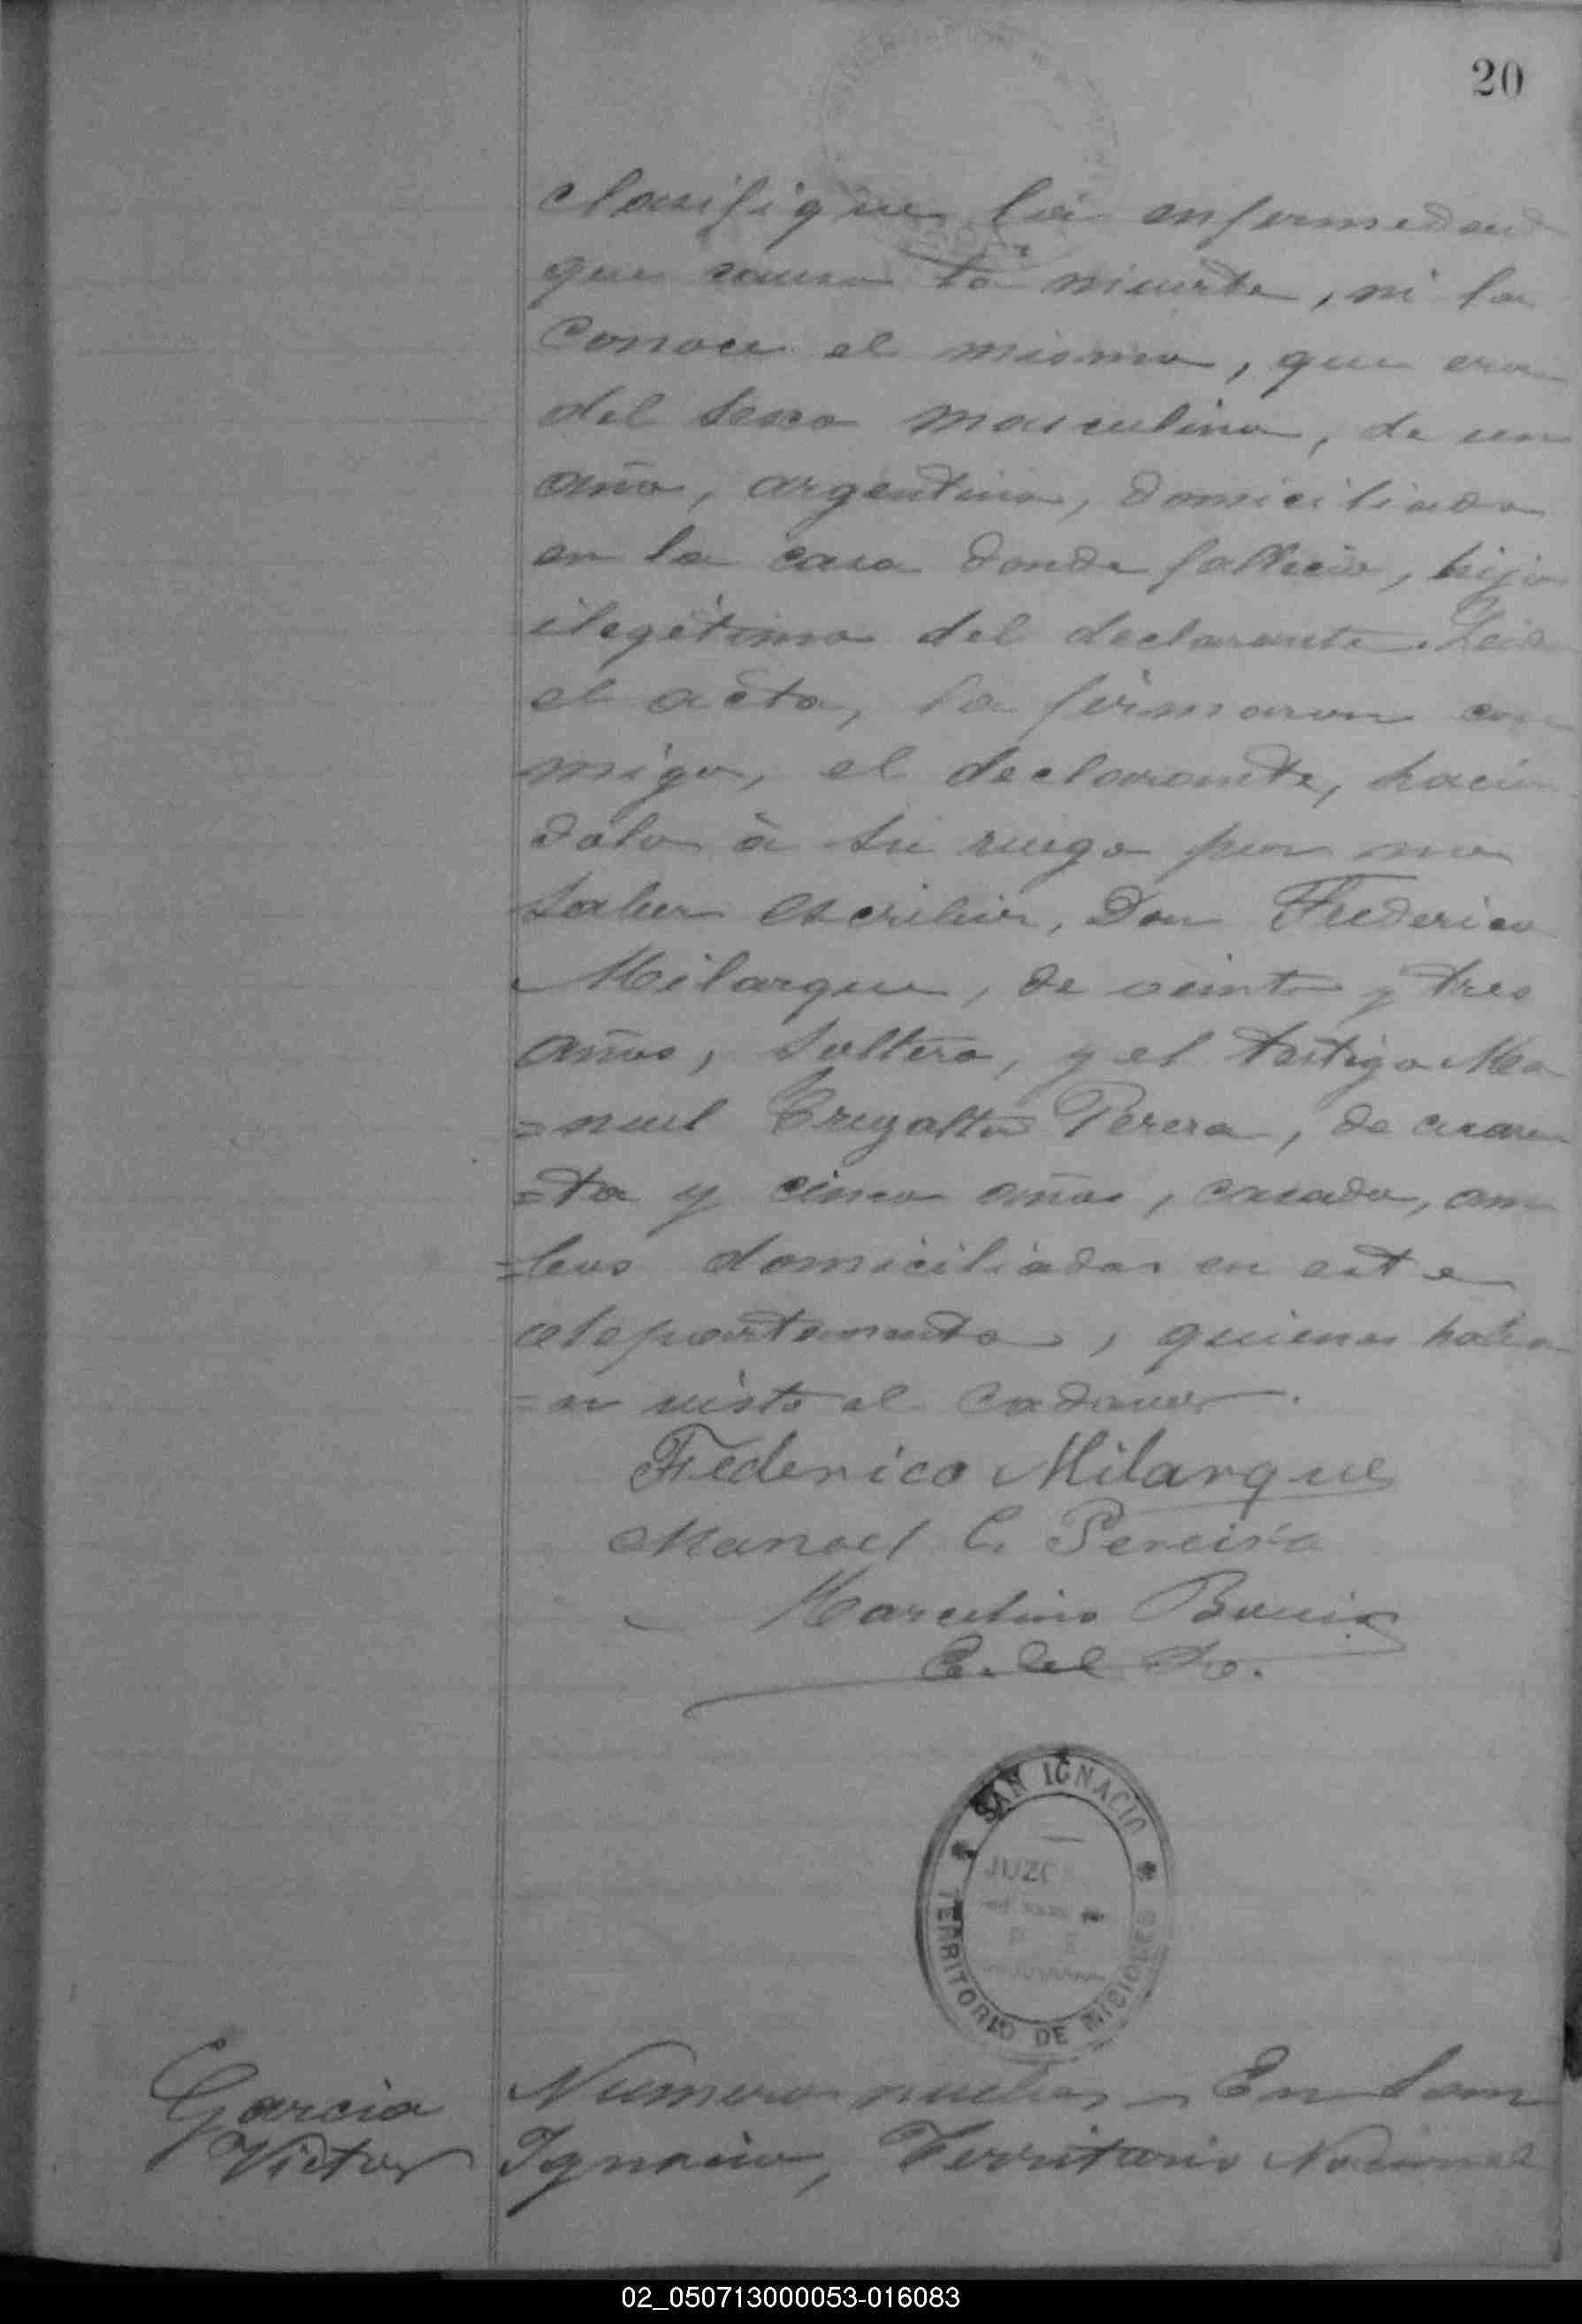 20
clasifique la enfermedad
que causo la muerte, ni la
conoce el mismo, que era
del sexo masculino, de un
año, argentino, domiciliado
en la casa donde fallecio, hijo
ilegétimo del declarante. Leida
el acta, la firmaron con
migo, el declarante, hacien
dolo à su ruego por no
saber escribir, Don Federico
Milarque, de veinte y tres
años, soltero, y el testigo Ma
=nuel Perera, de cuaren
=ta y cinco años, casado, am
=bos domiciliados en este
departamento, quienes habi
=an visto el cadaver.
Federico Milarque
Manoel C. Pereira
Marcelino
E. del R.
SAN IGNACIO
JUZG
TERRITORIO DE MISIONES
Garcia
Victor
Numero nueve. En San
Ignacio, Territorio Nacional
02_050713000053-016083